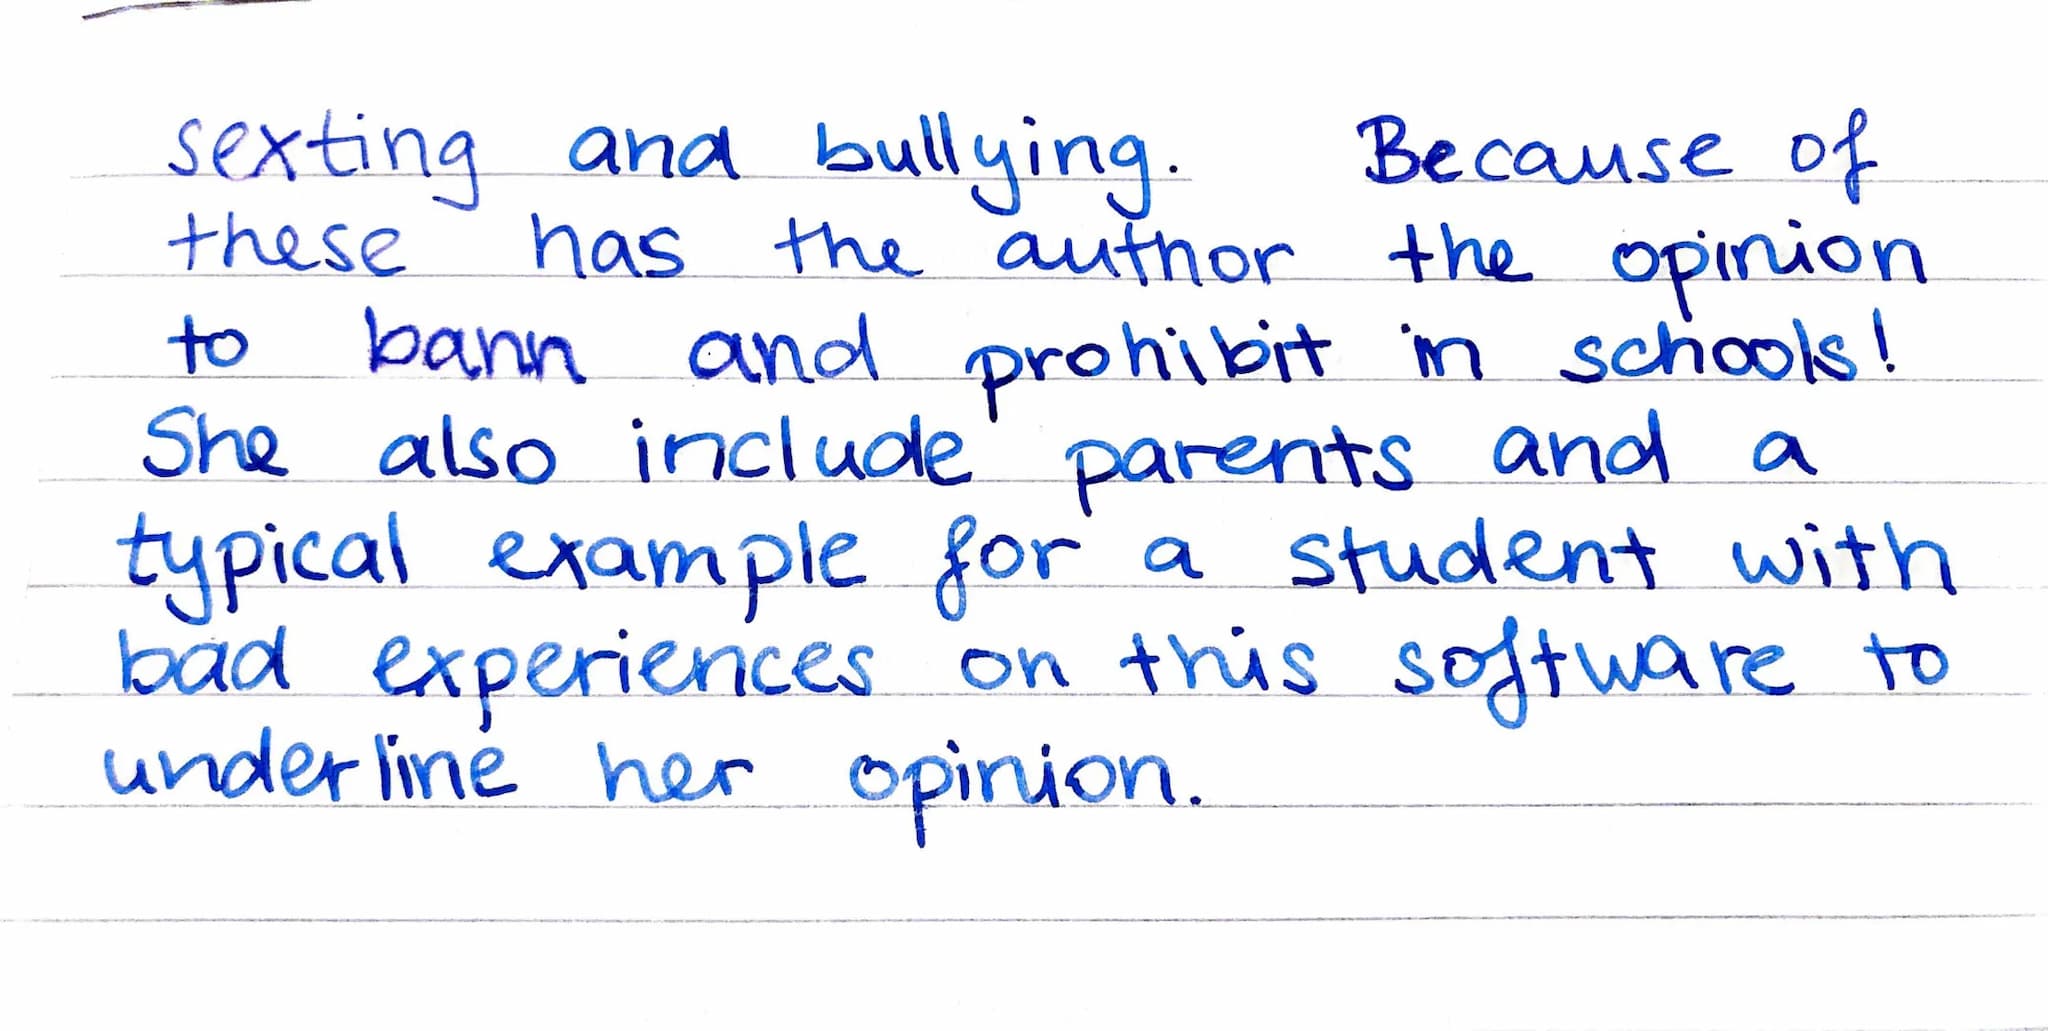 sexting and bullying. Because of
these has the author the opinion
to bann and prohibit in schools!
She also include parents and a
typical example for a student with
bad experiences on this software to
underline her opinion.